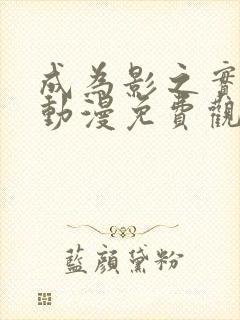 成為影之實
動漫免費觀
藍顏黛粉